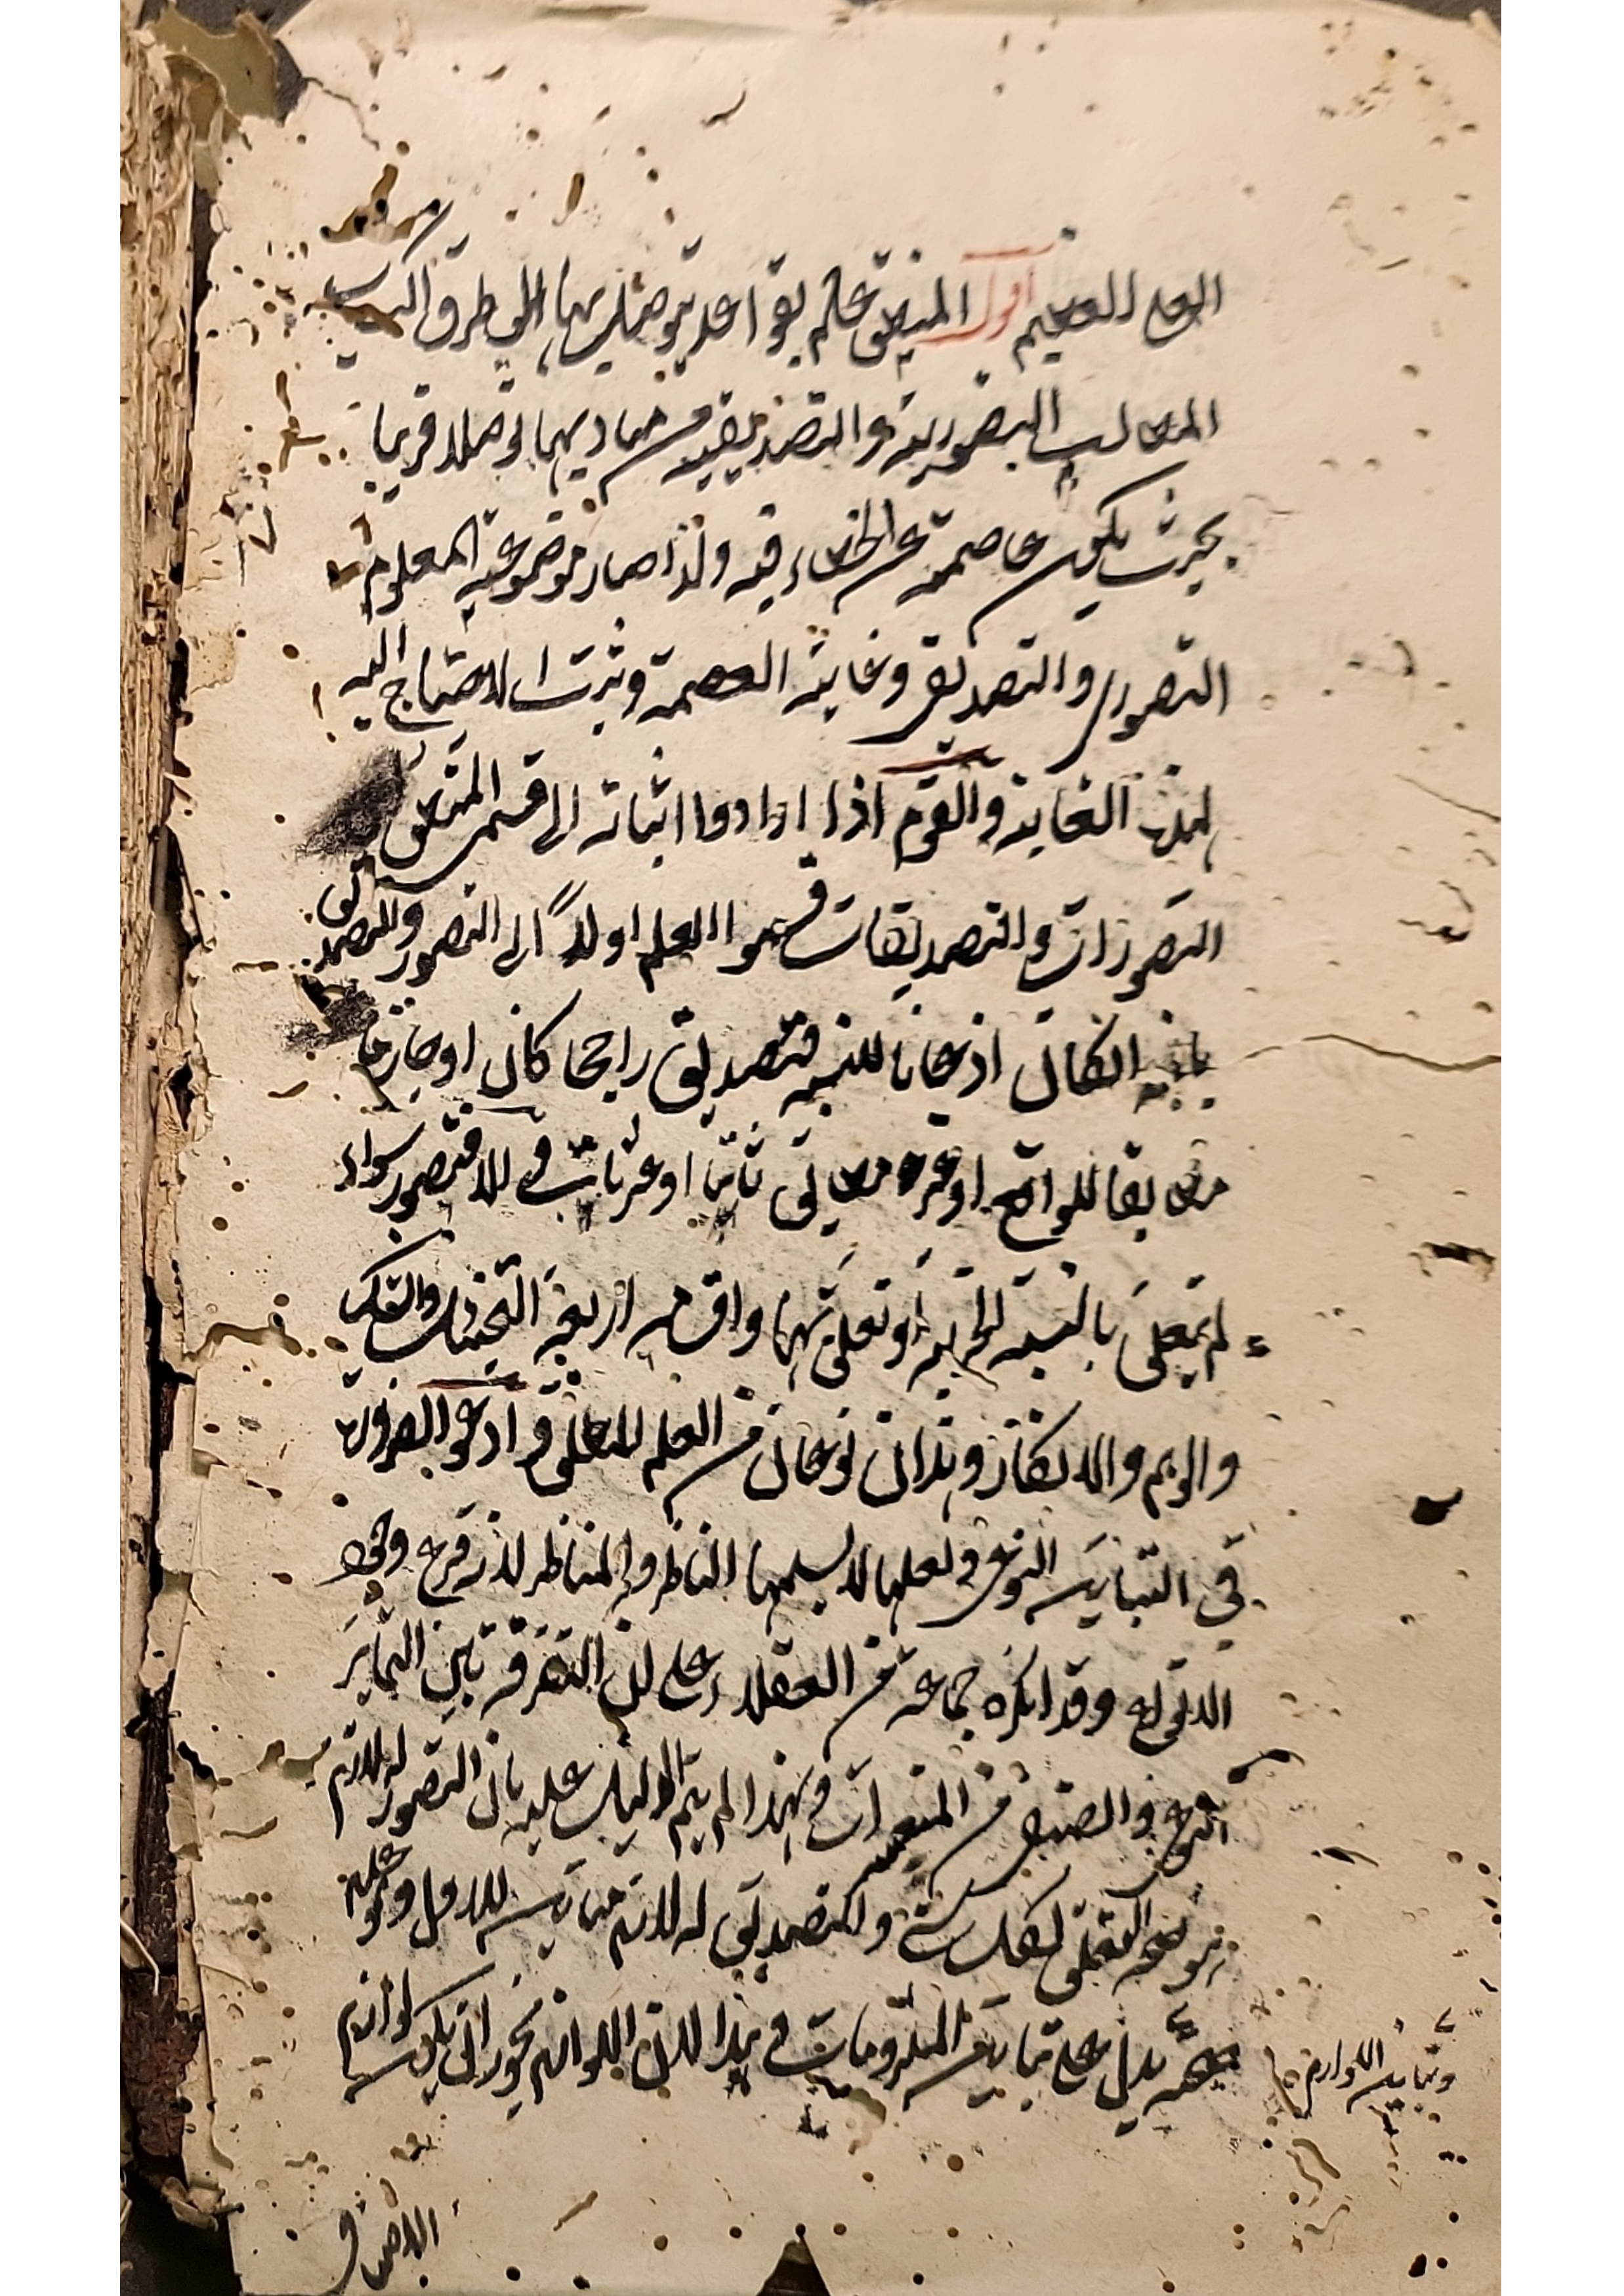 العلي العظيم اقول المنطق علم بقواعد يتوصل بها الى طرق اكتساب
المطالب التصورية والتصديقية من مباديهما توصلا قريبا
بحيث يكون عاصمة عن الخطاء فيه ولذا صار موضوعه المعلوم
التصوري والتصديقي وغايته العصمة وثبت الاحتياج اليه
لهذه الغاية والقوم اذا ارادوا اثباته الى قسمي المنطق
التصورات والتصديقات قسموا العلم اولاً الى التصور والتصديق
بانه ان كان اذعانا للنسبة فتصديق راجحا كان او جازما
مطابقا للواقع او غير مطابق ثابتا او غير ثابت والا فتصور سواء
لم يتعلق بالنسبة الخبرية او تعلق بها واقسامه اربعة التخييل والشك
والوهم والانكار وهذان نوعان من العلم المطلق وادعوا الضرورة
في التباين النوعي ولعلها لا يسلمها الناظر والمناظر لانه فرع وجود
الانواع وقد انكره جماعة من العقلاء على ان التفرقة بين التمايز
النوعي والصنفي من المتعسرات ولهذا لم يتم الدليل عليه بان التصور له لازم
هو صحة التعلق لكل شيء والتصديق له لازم مباين للاول وهو عدم
صحته يدل على تباين الملزومات وهذا لان اللوازم يجوز ان يكون لوازم
وتباين اللوازم
الاصناف